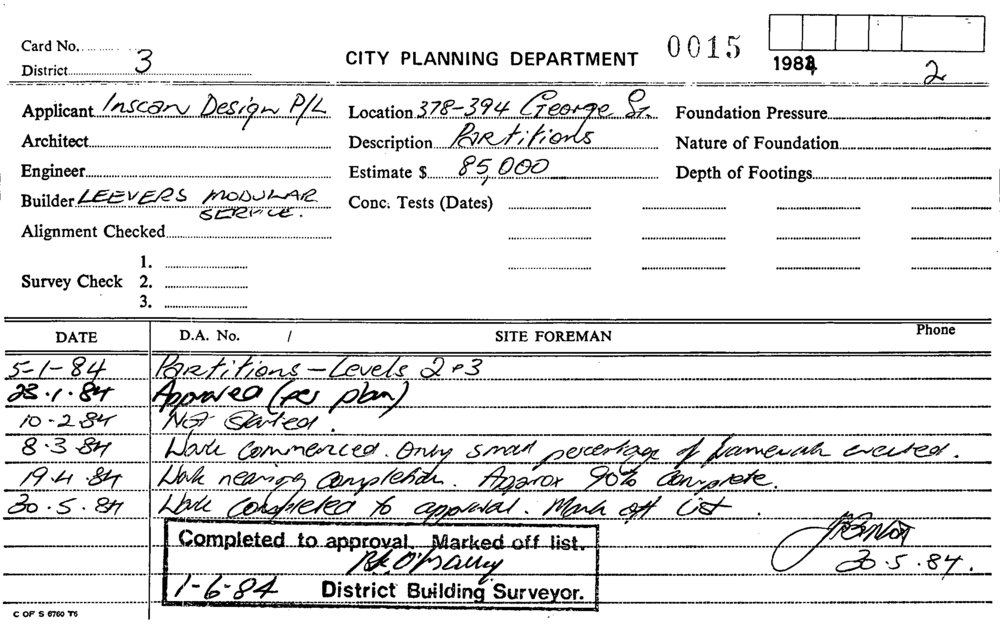 Card No.
District 3
CITY PLANNING DEPARTMENT
0015
1984
2
Applicant Inscan Design P/L
Location 378-394 George St.
Foundation Pressure
Architect
Description Partitions
Nature of Foundation
Engineer
Estimate $ 85,000
Depth of Footings
Builder LEEVERS MODULAR
SERVICE.
Conc. Tests (Dates)
Alignment Checked
Survey Check
1.
2.
3.
DATE D.A. No. / SITE FOREMAN Phone
5-1-84 Partitions - Levels 2 & 3
23.1.84 Approved (per plan)
10-2-84 Not Started.
8-3-84 Work commenced. Only small percentage of framework erected.
19-4-84 Work nearing completion. Approx 90% complete.
30.5.84 Work completed to approval. Mark off List.
30.5.84.
Completed to approval. Marked off list.
1-6-84 District Building Surveyor.
C OF S 6760 T6